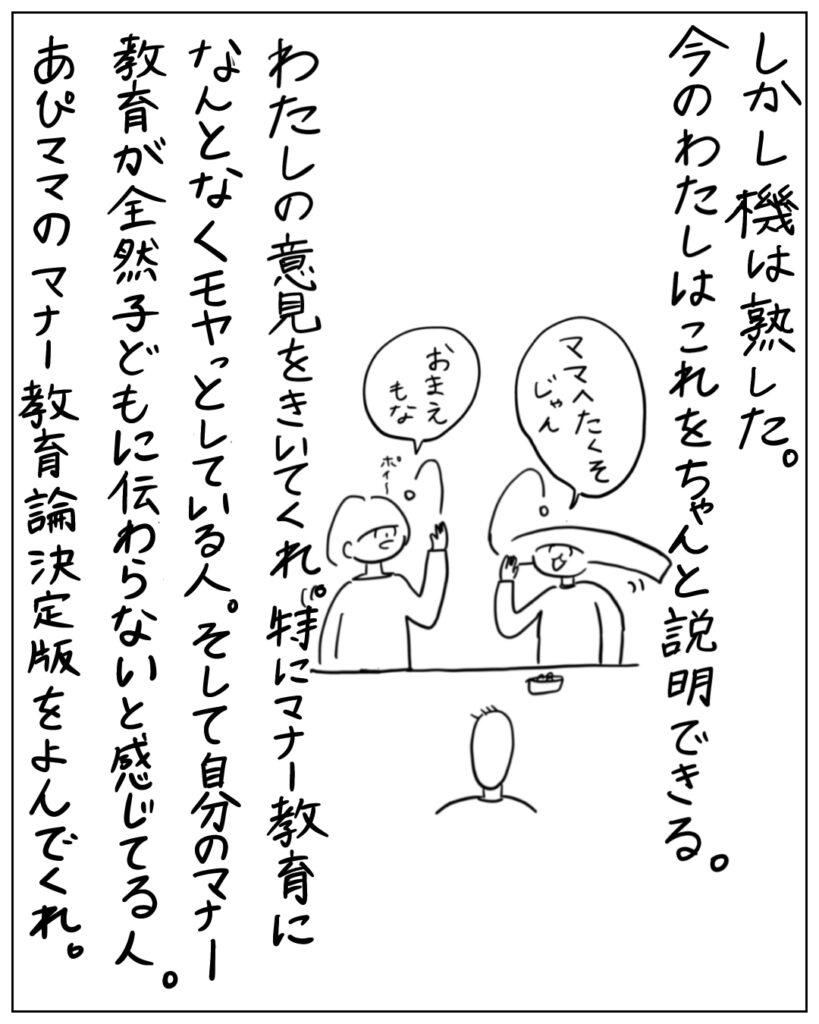 しかし機は熟した。
今のわたしはこれをちゃんと説明できる。
ママへたくそ
じゃん
おまえ
もな
ポイ〜
わたしの意見をきいてくれ。特にマナー教育に
なんとなくモヤっとしている人。そして自分のマナー
教育が全然子どもに伝わらないと感じてる人。
あぴママのマナー教育論決定版をよんでくれ。